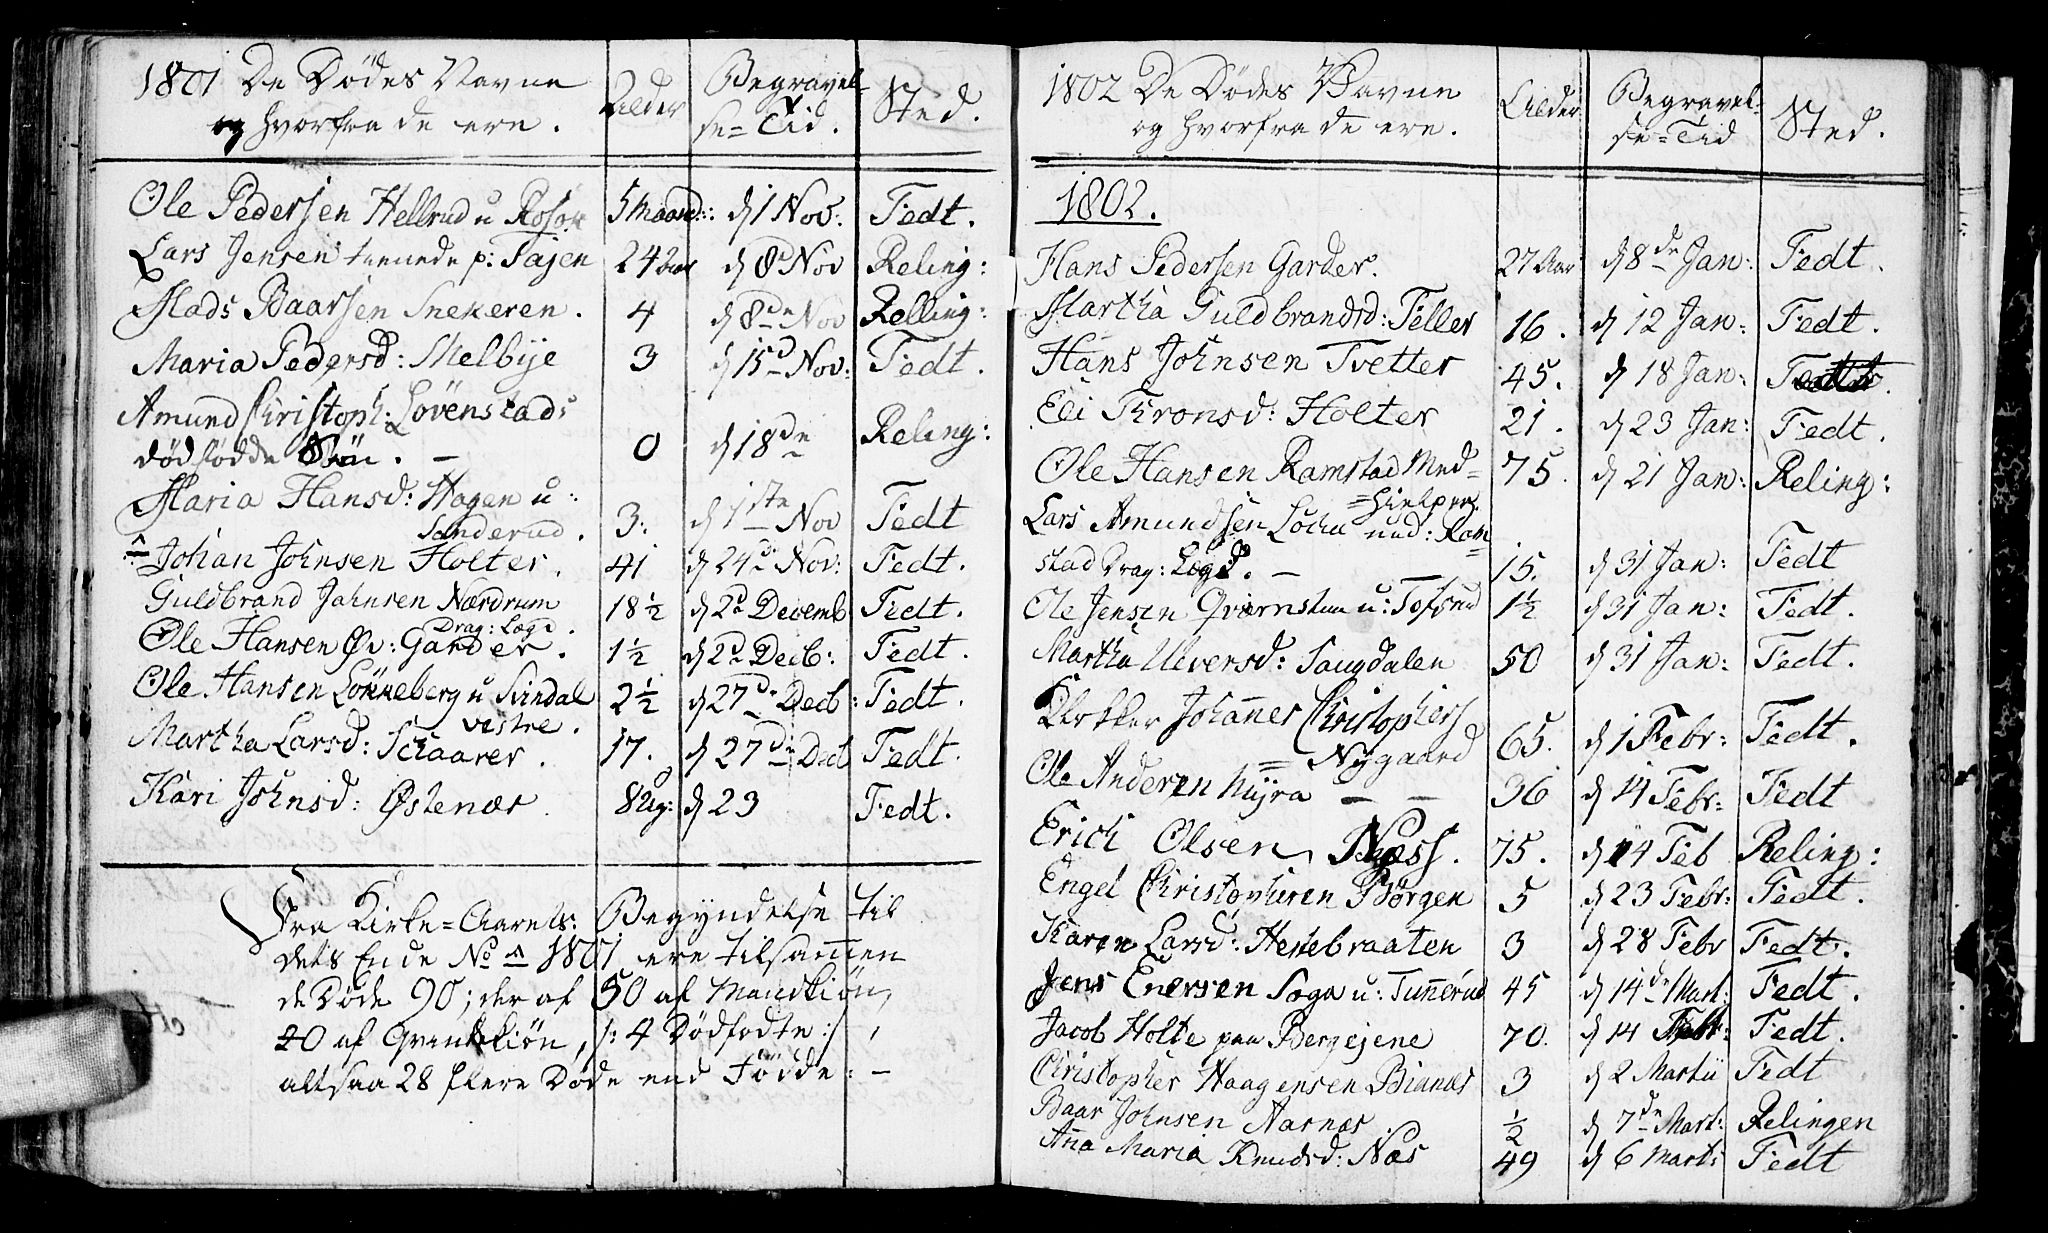 1801 De Dødes Navne
og hvorfra de ere.
Alder
Begravel-
se=Tid.
Sted.
Ole Pedersen Hellrud u Rosok 5 Maaned: d 1 Nov: Fedt.
Lars Jensen p: Fajen 24 Aar d 8d Nov Reling:
Mads Baarsen Snekeren. 4 d 8de Nov Relling:
Maria Pedersd: Melbije 3 d 15d Nov: Fedt.
Amund Christoph: Løvenstads
dødfødde Sön. — 0 d 18de Reling:
Maria Hansd: Hagen u:
Sanderud. 3. d 1ste Nov Fedt
Johan Johnsen Holter. 41 d 24d Nov: Fedt.
Guldbrand Jahnsen Nærdrum 18 1/2 d 2d Decemb Fedt.
Drag: Lægd.
Ole Hansen Øv: Garder. 1 1/2 d 2d Decb: Fedt.
Ole Hansen Lønneberg u Svindal 2 1/2 d 27d Decb: Fedt.
vestre.
Martha Larsd: Schaarer. 17. d 27de Decb Fedt.
Kari Johnsd: Østenær. 8 Ug: d 23 Fedt.
Fra Kirke=Aarets: Begyndelse til
dets Ende No 1 1801 ere tilsamen
de Døde 90; der af 50 af Mandkiön,
40 af Qvindekiön, /: 4 Dödfödte :/,
altsaa 28 flere Døde end Födde: —
1802 De Dødes Navne
og hvorfra de ere.
Alder
Begravel-
se=Tid
Sted.
1802.
Hans Pedersen Garder. 27 Aar d 8de Jan: Fedt.
Martha Guldbrandsd: Teller 16. d 12 Jan: Fedt.
Hans Johnsen Tvetter 45. d 18 Jan: Fedt.
Eli Thronsd: Holter 21. d 23 Jan: Fedt.
Ole Hansen Ramstad Med= 75. d 21 Jan: Reling:
=hielper.
Lars Amundsen Locha und: Ram=
stad Drag: Legd. — 15. d 31 Jan: Fedt
Ole Jensen Qværnstuen u: Tofsrud 1 1/2 d 31 Jan: Fedt.
Martha Ueversd: Saugdalen 50 d 31 Jan: Fedt.
Klokker Johannes Christophers
= Nygaard 65. d 1 Febr: Fedt.
Ole Andersen Myra — — 36 d 14 Febr: Fedt
Erich Olsen Næss. 75. d 14 Feb Reling:
Engel Christophersen Børgen 5 d 23 Febr: Fedt.
Karen Larsd: Heksebraaten 3 d 28 Febr Fedt.
Jens Enersen Soga u: Tunerud 45 d 14de Mart: Fedt.
Jacob Holte paa Bergejene 70. d 14 Febr: Fedt.
Christopher Haagensen Bianæs 3 d 2 Martii Fedt
Baar Johnsen Aarnæs 1/2 d 7de Mart: Relingen
Anna Maria Knudsd: Næs 49 d 6 Marts Fedt